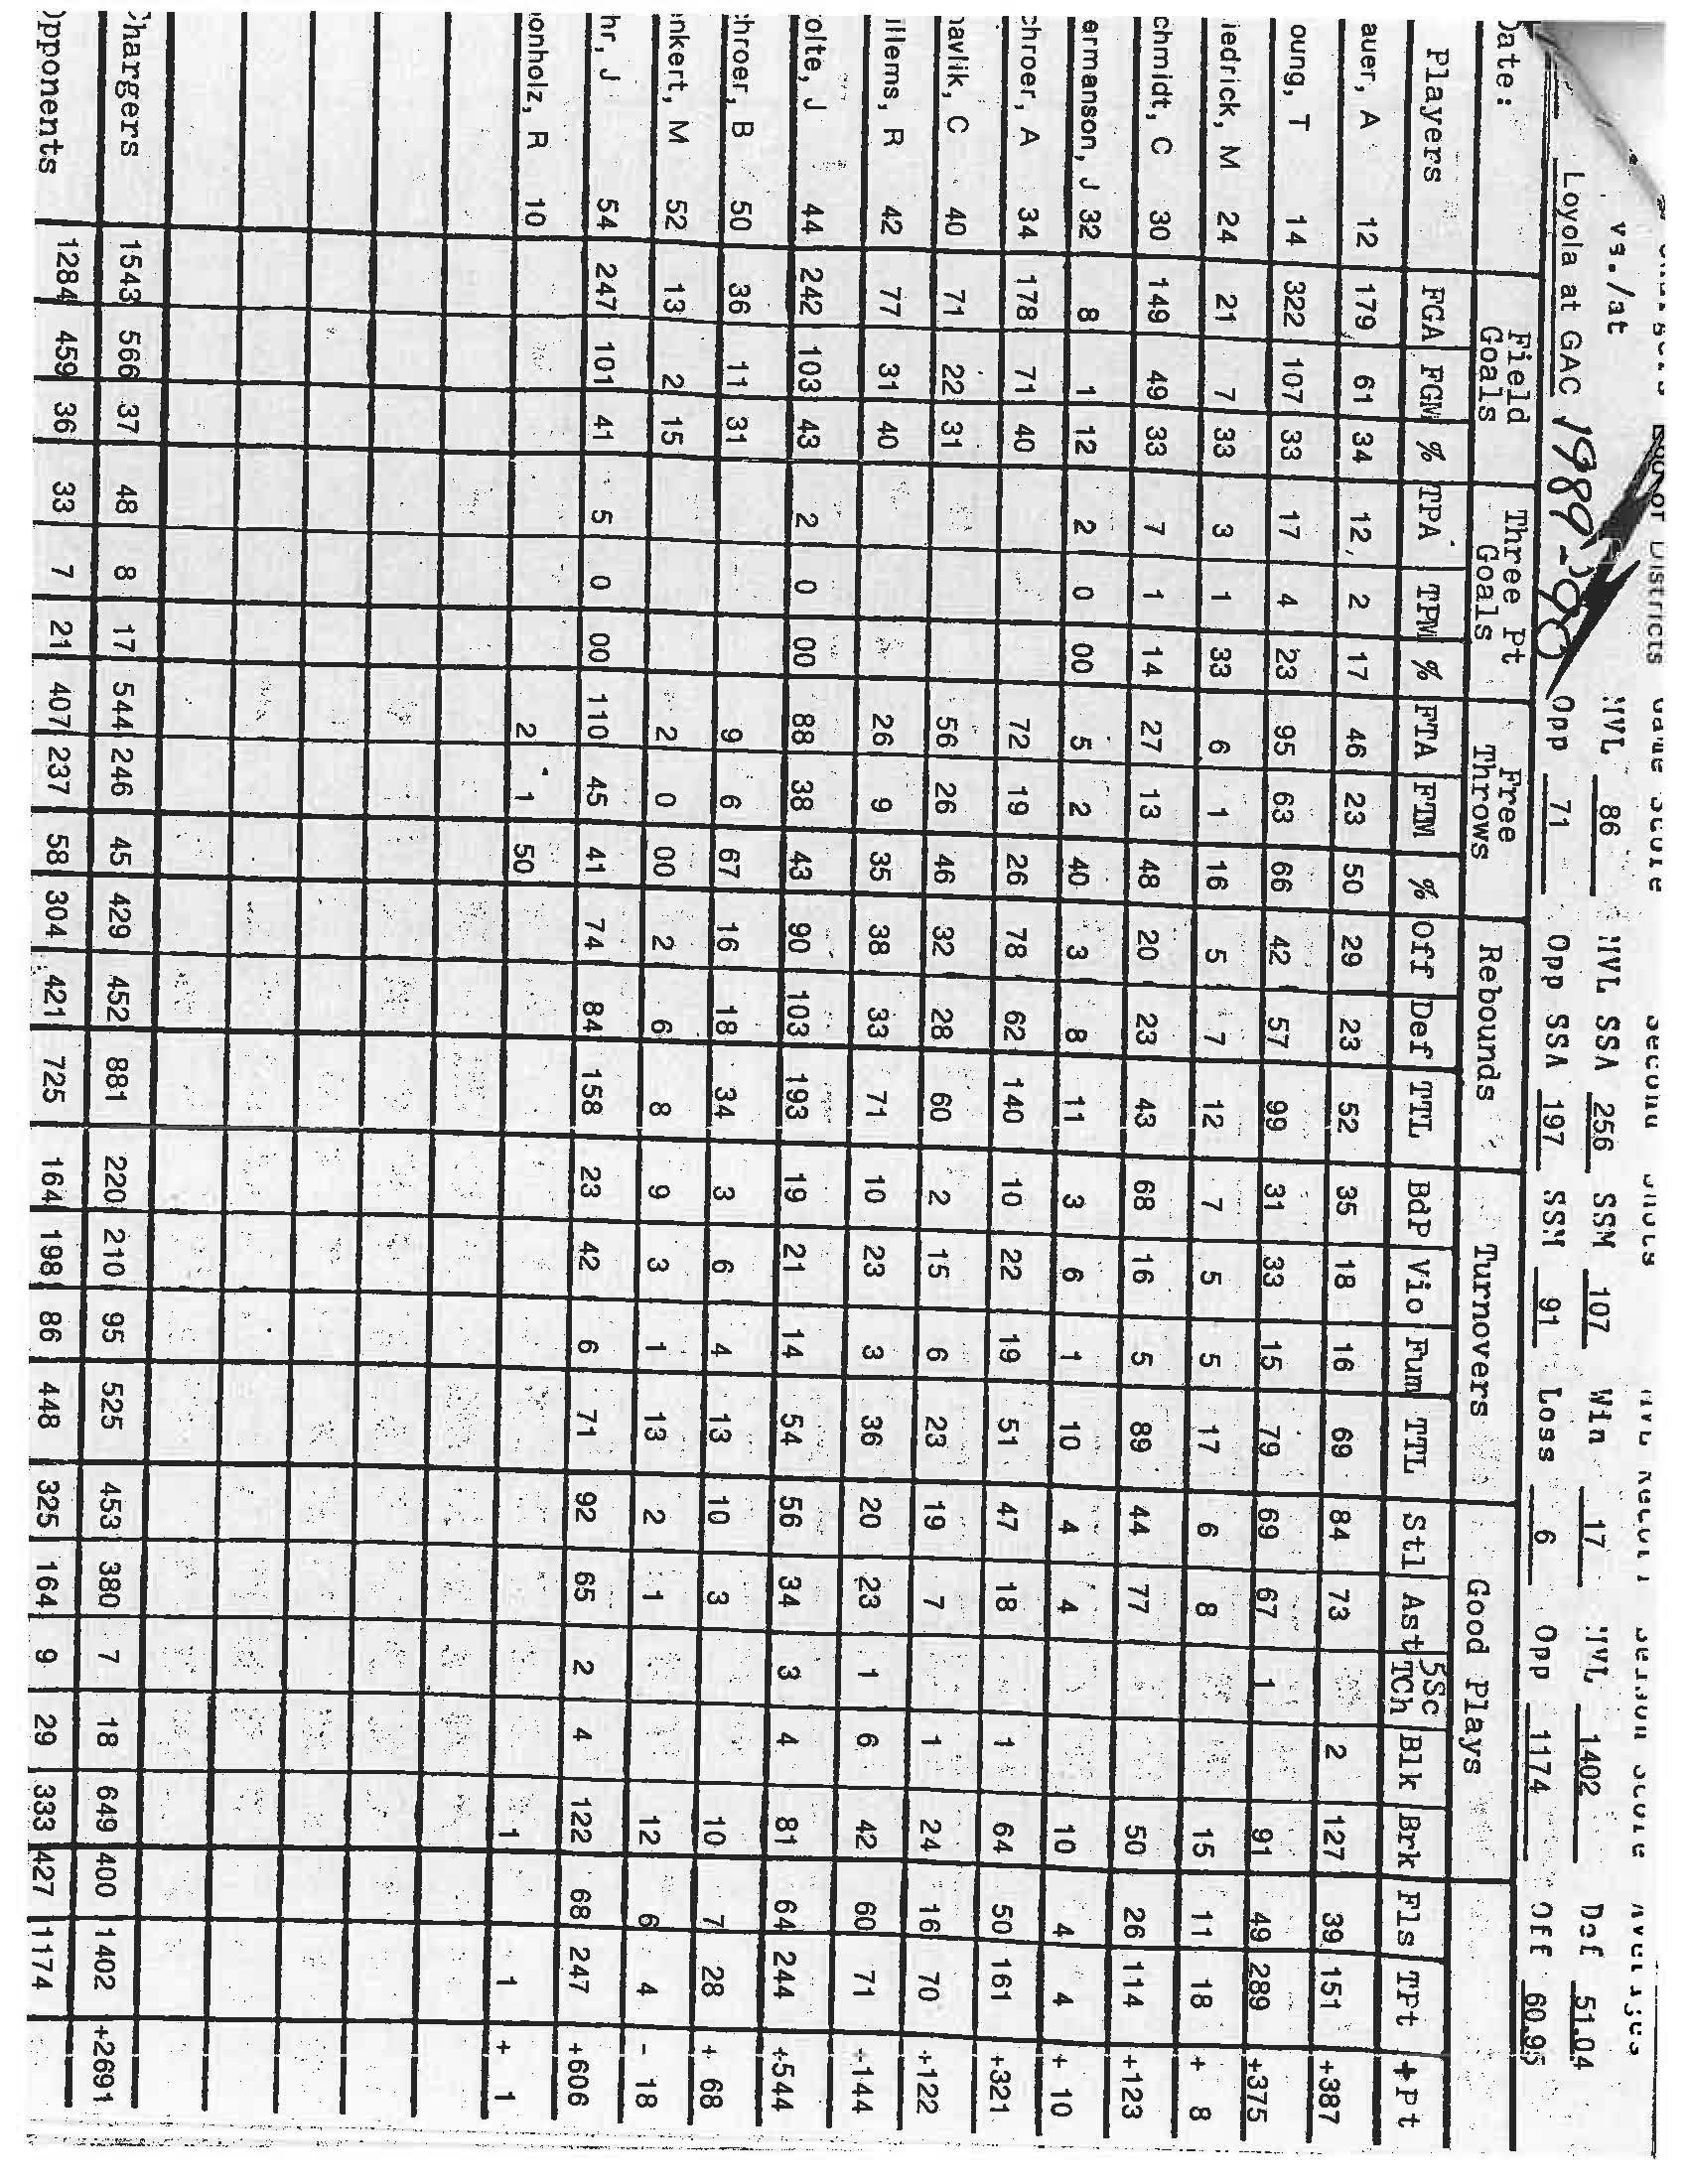 Districts Game Score Second Shots
vs./at MVL 86 MVL SSA 256 SSM 107 Win 17 MVL 1402 Def 51.04
Loyola at GAC 1989-90 Opp 71 Opp SSA 197 SSM 91 Loss 6 Opp 1174 Off 60.95
Date: Field Goals Three Pt Goals Free Throws Rebounds Turnovers Good Plays
Players FGA FGM % TPA TPM % FTA FTM % Off Def TTL BdP Vio Fum TTL Stl Ast 5Sc TCh Blk Brk Fls TPt + Pt
auer, A 12 179 61 34 12 2 17 46 23 50 29 23 52 35 18 16 69 84 73 2 127 39 151 +387
oung, T 14 322 107 33 17 4 23 95 63 66 42 57 99 31 33 15 79 69 67 1 91 49 289 +375
iedrick, M 24 21 7 33 3 1 33 6 1 16 5 7 12 7 5 5 17 6 8 15 11 18 + 8
chmidt, C 30 149 49 33 7 1 14 27 13 48 20 23 43 68 16 5 89 44 77 50 26 114 +123
ermanson, J 32 8 1 12 2 0 00 5 2 40 3 8 11 3 6 1 10 4 4 10 4 4 + 10
chroer, A 34 178 71 40 72 19 26 78 62 140 10 22 19 51 47 18 1 64 50 161 +321
navlik, C 40 71 22 31 56 26 46 32 28 60 2 15 6 23 19 7 1 24 16 70 +122
illems, R 42 77 31 40 26 9 35 38 33 71 10 23 3 36 20 23 1 6 42 60 71 +144
olte, J 44 242 103 43 2 0 00 88 38 43 90 103 193 19 21 14 54 56 34 3 4 81 64 244 +544
chroer, B 50 36 11 31 9 6 67 16 18 34 3 6 4 13 10 3 10 7 28 + 68
nkert, M 52 13 2 15 2 0 00 2 6 8 9 3 1 13 2 1 12 6 4 - 18
hr, J 54 247 101 41 5 0 00 110 45 41 74 84 158 23 42 6 71 92 65 2 4 122 68 247 +606
onholz, R 10 2 1 50 1 1 + 1
Chargers 1543 566 37 48 8 17 544 246 45 429 452 881 220 210 95 525 453 380 7 18 649 400 1402 +2691
Opponents 1284 459 36 33 7 21 407 237 58 304 421 725 164 198 86 448 325 164 9 29 333 427 1174